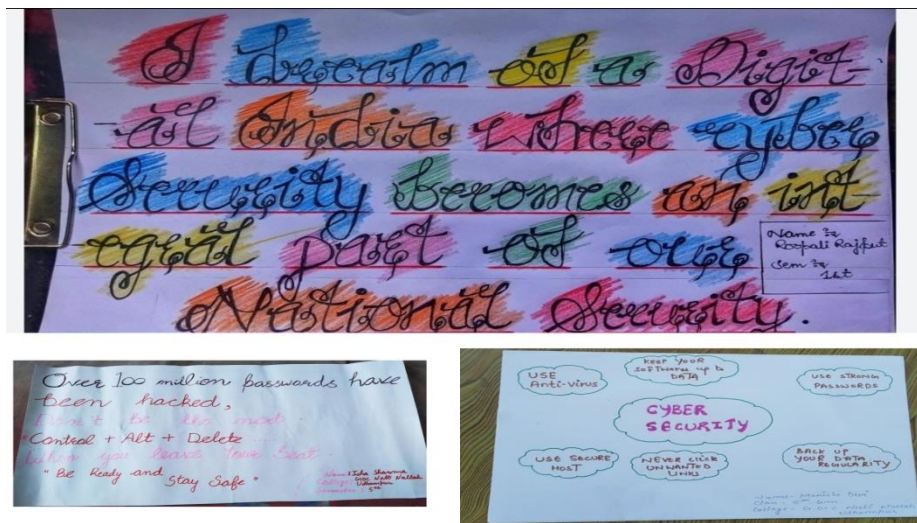 I dream of a Digit-
al India where cyber
Security becomes an int-
egral part of our
National Security.
Name :-
Roopali Rajput
Sem :-
1st
Over 100 million passwords have
been hacked,
Don't be the next
"Control + Alt + Delete ...
When you leave Your Seat
"Be Ready and
Stay Safe"
Name: Isha Sharma
College:
Udhampur
Semester: 5th
USE
Anti-VIRUS
KEEP YOUR
SOFTWARE UP to
DATA
USE STRONG
PASSWORDS
CYBER
SECURITY
USE SECURE
HOST
NEVER CLICK
UNWANTED
LINKS
BACK UP
YOUR DATA
REGULARITY
Name- Devi
Class-
College-
Udhampur